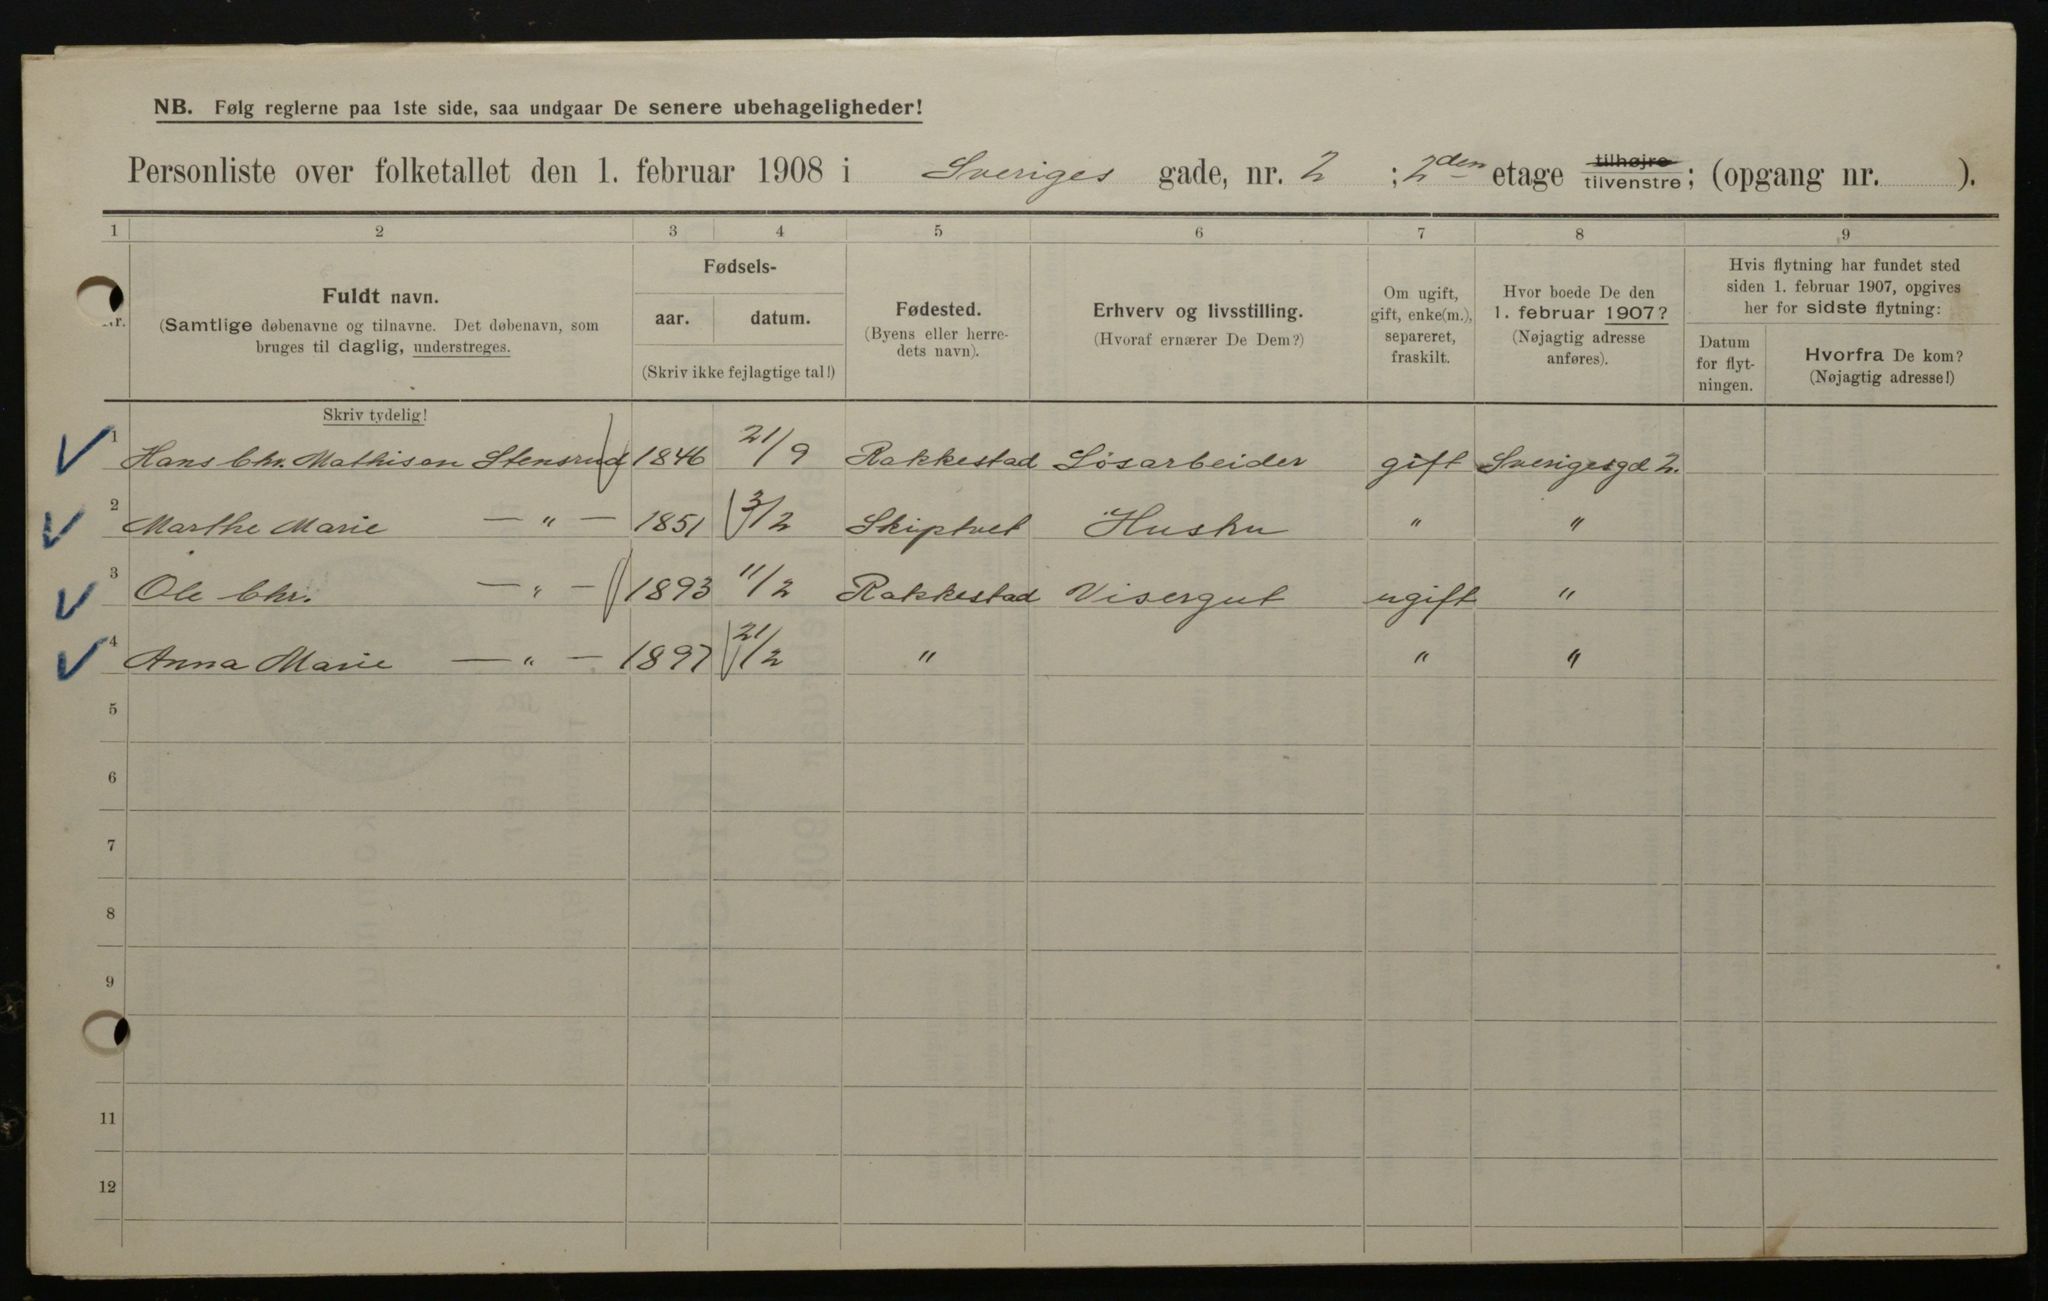 NB. Følg reglerne paa 1ste side, saa undgaar De senere ubehageligheder!
Personliste over folketallet den 1. februar 1908 i Sveriges gade, nr. 2 ; 2den etage tilhøjre tilvenstre; (opgang nr. ).
1 2 3 4 5 6 7 8 9
Fuldt navn.
(Samtlige døbenavne og tilnavne. Det døbenavn, som
bruges til daglig, understreges.
Skriv tydelig!
Fødsels-
aar. datum.
(Skriv ikke fejlagtige tal!)
Fødested.
(Byens eller herre-
dets navn).
Erhverv og livsstilling.
(Hvoraf ernærer De Dem?)
Om ugift,
gift, enke(m.),
separeret,
fraskilt.
Hvor boede De den
1. februar 1907?
(Nøjagtig adresse
anføres).
Hvis flytning har fundet sted
siden 1. februar 1907, opgives
her for sidste flytning:
Datum
for flyt-
ningen.
Hvorfra De kom?
(Nøjagtig adresse!)
1 Hans Chr. Mathisen Stensrud 1846 21/9 Rakkestad Løsarbeider gift Sverigesgd 2.
2 Marthe Marie — " — 1851 3/2 Skiptvet Hustru " "
3 Ole Chr. — " — 1893 11/2 Rakkestad Visergut ugift "
4 Anna Marie — " — 1897 21/2 " " "
5
6
7
8
9
11
12